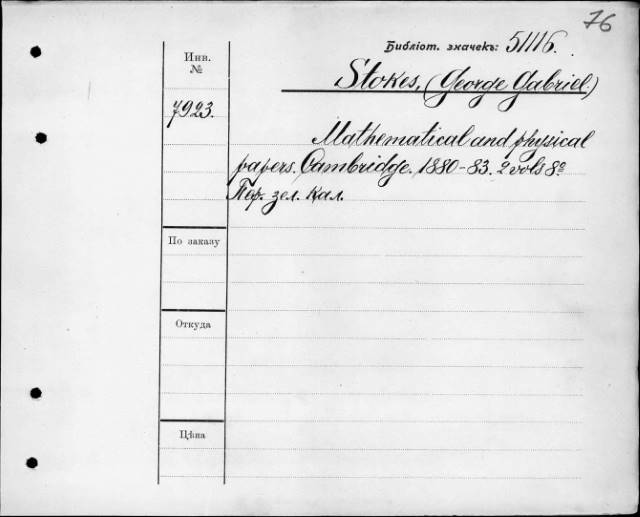 76
Библіот. значекъ: 51116.
Инв.
№
Stokes, (George Gabriel.)
7923.
Mathematical and physical
papers. Cambridge. 1880-83. 2 vols 8º
Пер. зел. кал.
По заказу
Откуда
Цѣна